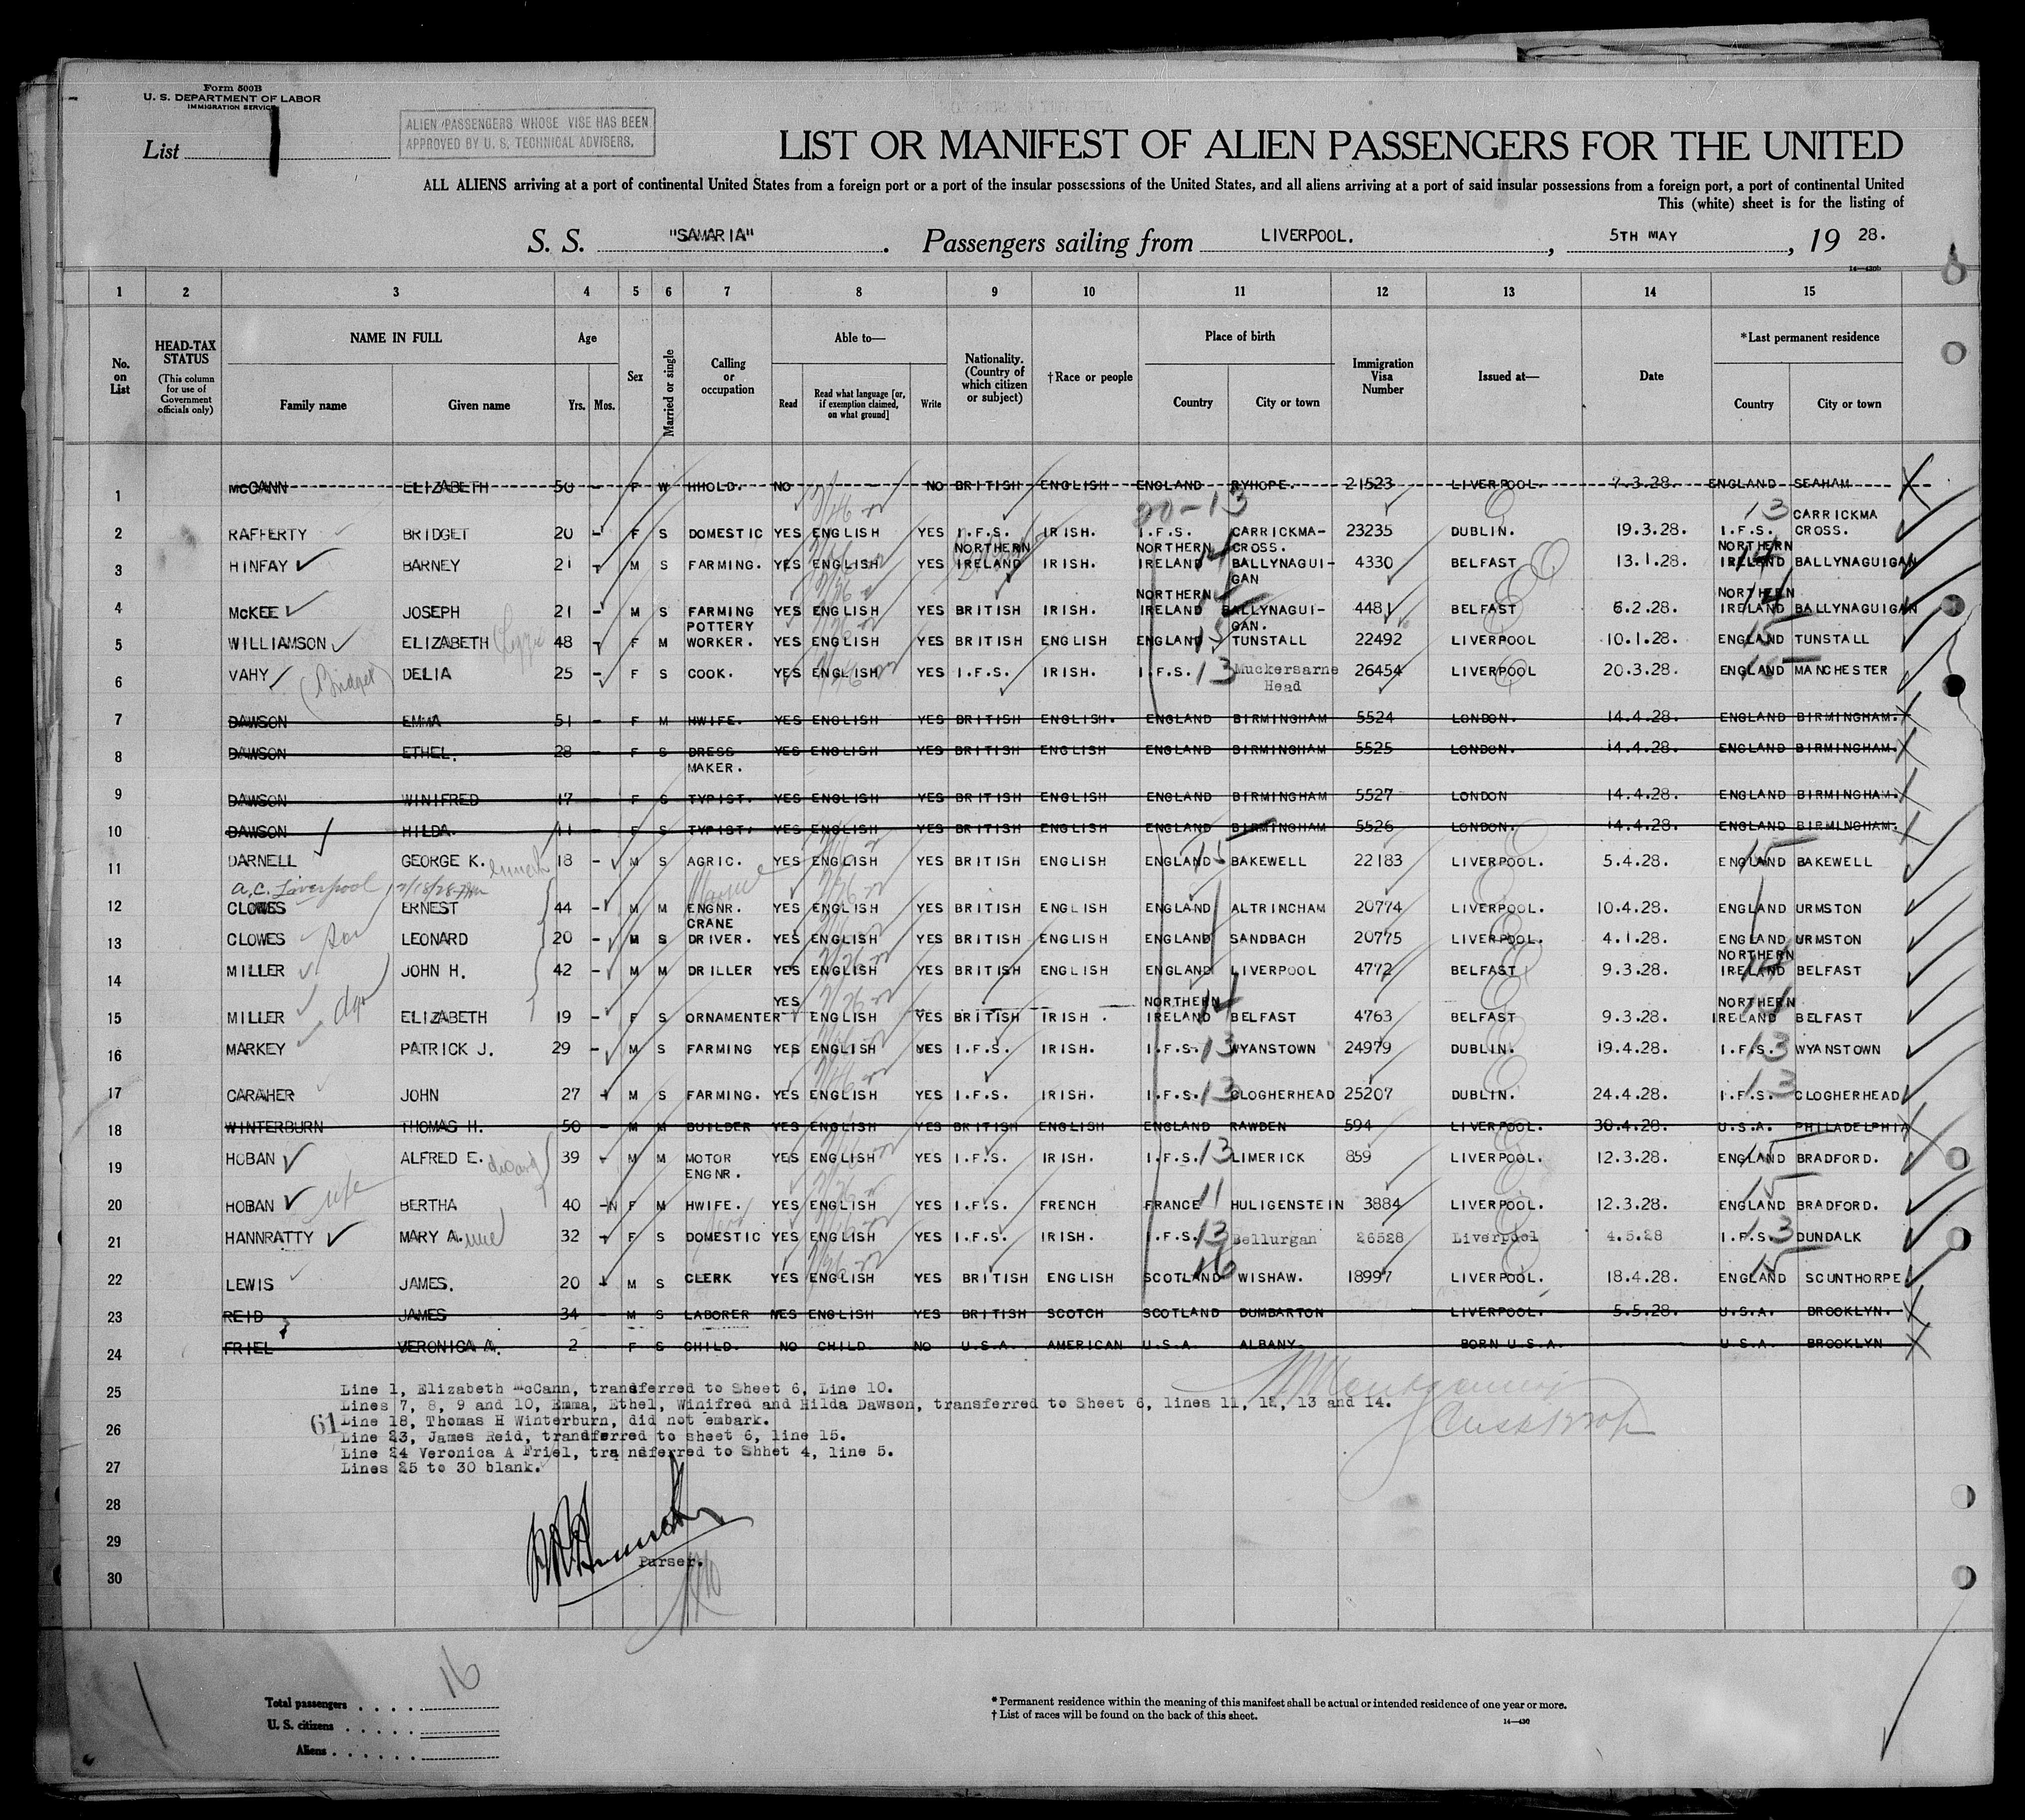 Form 500B
U. S. DEPARTMENT OF LABOR
IMMIGRATION SERVICE
List 1
ALIEN PASSENGERS WHOSE VISE HAS BEEN
APPROVED BY U. S. TECHNICAL ADVISERS.
LIST OR MANIFEST OF ALIEN PASSENGERS FOR THE UNITED
ALL ALIENS arriving at a port of continental United States from a foreign port or a port of the insular possessions of the United States, and all aliens arriving at a port of said insular possessions from a foreign port, a port of continental United
This (white) sheet is for the listing of
S. S. "SAMARIA" . Passengers sailing from LIVERPOOL. , 5TH MAY , 19 28.
14—430b
1 2 3 4 5 6 7 8 9 10 11 12 13 14 15
No. on List
HEAD-TAX STATUS (This column for use of Government officials only)
NAME IN FULL Family name Given name
Age Yrs. Mos.
Sex
Married or single
Calling or occupation
Able to— Read Read what language [or, if exemption claimed, on what ground] Write
Nationality. (Country of which citizen or subject)
†Race or people
Place of birth Country City or town
Immigration Visa Number
Issued at—
Date
*Last permanent residence Country City or town
1 McCANN ELIZABETH 50 - F W HHOLD. NO - NO BRITISH ENGLISH ENGLAND RYHOPE. 21523 LIVERPOOL. 7.3.28. ENGLAND SEAHAM
20-13
2 RAFFERTY BRIDGET 20 - F S DOMESTIC YES ENGLISH YES I.F.S. IRISH. I.F.S. CARRICKMA-CROSS. 23235 DUBLIN. 19.3.28. I.F.S. 13 CARRICKMA CROSS.
3 HINFAY BARNEY 21 - M S FARMING. YES ENGLISH YES NORTHERN IRELAND IRISH. NORTHERN IRELAND 14 BALLYNAGUI-GAN 4330 BELFAST 13.1.28. NORTHERN IRELAND 14 BALLYNAGUIGAN
4 McKEE JOSEPH 21 - M S FARMING YES ENGLISH YES BRITISH IRISH. NORTHERN IRELAND 14 BALLYNAGUI-GAN. 4481 BELFAST 6.2.28. NORTHERN IRELAND 14 BALLYNAGUIGAN
5 WILLIAMSON ELIZABETH 48 - F M POTTERY WORKER. YES ENGLISH YES BRITISH ENGLISH ENGLAND 15 TUNSTALL 22492 LIVERPOOL 10.1.28. ENGLAND 15 TUNSTALL
6 VAHY (Bridget) DELIA 25 - F S COOK. YES ENGLISH YES I.F.S. IRISH. I.F.S. 13 Muckersarne Head 26454 LIVERPOOL 20.3.28. ENGLAND 15 MANCHESTER
7 DAWSON EMMA 51 - F M HWIFE. YES ENGLISH YES BRITISH ENGLISH. ENGLAND BIRMINGHAM 5524 LONDON. 14.4.28. ENGLAND BIRMINGHAM.
8 DAWSON ETHEL. 28 - F S DRESS MAKER. YES ENGLISH YES BRITISH ENGLISH ENGLAND BIRMINGHAM 5525 LONDON. 14.4.28. ENGLAND BIRMINGHAM.
9 DAWSON WINIFRED 17 - F S TYPIST. YES ENGLISH YES BRITISH ENGLISH ENGLAND BIRMINGHAM 5527 LONDON 14.4.28. ENGLAND BIRMINGHAM.
10 DAWSON HILDA. 11 - F S TYPIST. YES ENGLISH YES BRITISH ENGLISH ENGLAND BIRMINGHAM 5526 LONDON. 14.4.28. ENGLAND BIRMINGHAM.
11 DARNELL GEORGE K. 18 - M S AGRIC. YES ENGLISH YES BRITISH ENGLISH ENGLAND 15 BAKEWELL 22183 LIVERPOOL. 5.4.28. ENGLAND 15 BAKEWELL
a.c. Liverpool
12 CLOWES ERNEST 44 - M M ENGNR. YES ENGLISH YES BRITISH ENGLISH ENGLAND ALTRINCHAM 20774 LIVERPOOL. 10.4.28. ENGLAND URMSTON
13 CLOWES son LEONARD 20 - M S CRANE DRIVER. YES ENGLISH YES BRITISH ENGLISH ENGLAND SANDBACH 20775 LIVERPOOL. 4.1.28. ENGLAND URMSTON
14 MILLER JOHN H. 42 - M M DRILLER YES ENGLISH YES BRITISH ENGLISH ENGLAND LIVERPOOL 4772 BELFAST 9.3.28. NORTHERN IRELAND 14 BELFAST
15 MILLER ELIZABETH 19 - F S ORNAMENTER YES ENGLISH YES BRITISH IRISH . NORTHERN IRELAND 14 BELFAST 4763 BELFAST 9.3.28. NORTHERN IRELAND 14 BELFAST
16 MARKEY PATRICK J. 29 - M S FARMING YES ENGLISH YES I.F.S. IRISH. I.F.S. 13 WYANSTOWN 24979 DUBLIN. 19.4.28. I.F.S. 13 WYANSTOWN
17 CARAHER JOHN 27 - M S FARMING. YES ENGLISH YES I.F.S. IRISH. I.F.S. 13 CLOGHERHEAD 25207 DUBLIN. 24.4.28. I.F.S. 13 CLOGHERHEAD
18 WINTERBURN THOMAS H. 50 - M M BUILDER YES ENGLISH YES BRITISH ENGLISH ENGLAND RAWDEN 594 LIVERPOOL. 30.4.28. U.S.A. PHILADELPHIA
19 HOBAN ALFRED E. 39 - M M MOTOR ENGNR. YES ENGLISH YES I.F.S. IRISH. I.F.S. 13 LIMERICK 859 LIVERPOOL. 12.3.28. ENGLAND 15 BRADFORD.
20 HOBAN wife BERTHA 40 -N F M HWIFE. YES ENGLISH YES I.F.S. FRENCH FRANCE 11 HULIGENSTEIN 3884 LIVERPOOL. 12.3.28. ENGLAND 15 BRADFORD.
21 HANNRATTY MARY A. 32 - F S DOMESTIC YES ENGLISH YES I.F.S. IRISH. I.F.S. 13 Bellurgan 26528 Liverpool 4.5.28 I.F.S. 13 DUNDALK
22 LEWIS JAMES. 20 - M S CLERK YES ENGLISH YES BRITISH ENGLISH SCOTLAND 16 WISHAW. 18997 LIVERPOOL. 18.4.28. ENGLAND 15 SCUNTHORPE
23 REID JAMES 34 - M S LABORER YES ENGLISH YES BRITISH SCOTCH SCOTLAND DUMBARTON LIVERPOOL. 5.5.28. U.S.A. BROOKLYN.
24 FRIEL VERONICA A. 2 - F S CHILD. NO CHILD NO U.S.A. AMERICAN U.S.A. ALBANY. BORN U.S.A. U.S.A. BROOKLYN
25 Line 1, Elizabeth McCann, transferred to Sheet 6, Line 10.
Lines 7, 8, 9 and 10, Emma, Ethel, Winifred and Hilda Dawson, transferred to Sheet 6, lines 11, 12, 13 and 14.
26 61 Line 18, Thomas H Winterburn, did not embark.
Line 23, James Reid, transferred to sheet 6, line 15.
Line 24 Veronica A Friel, tra nsferred to Shhet 4, line 5.
27 Lines 25 to 30 blank.
28
29
Purser.
30
Total passengers . . . . 16
U. S. citizens . . . . .
Aliens . . . . . .
* Permanent residence within the meaning of this manifest shall be actual or intended residence of one year or more.
† List of races will be found on the back of this sheet.
14—430